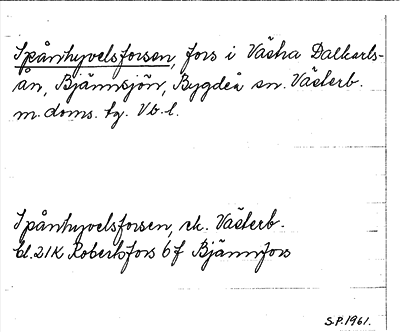 Spånhyvelsforsen, fors i Västra Dalkarls-
ån, Bjännsjön, Bygdeå sn. Västerb.
m. doms. tg. Vb. l.
Spånhyvelsforsen, rk. Västerb.
bl. 21K Robertsfors 6f Bjännfors
S.P. 1961.